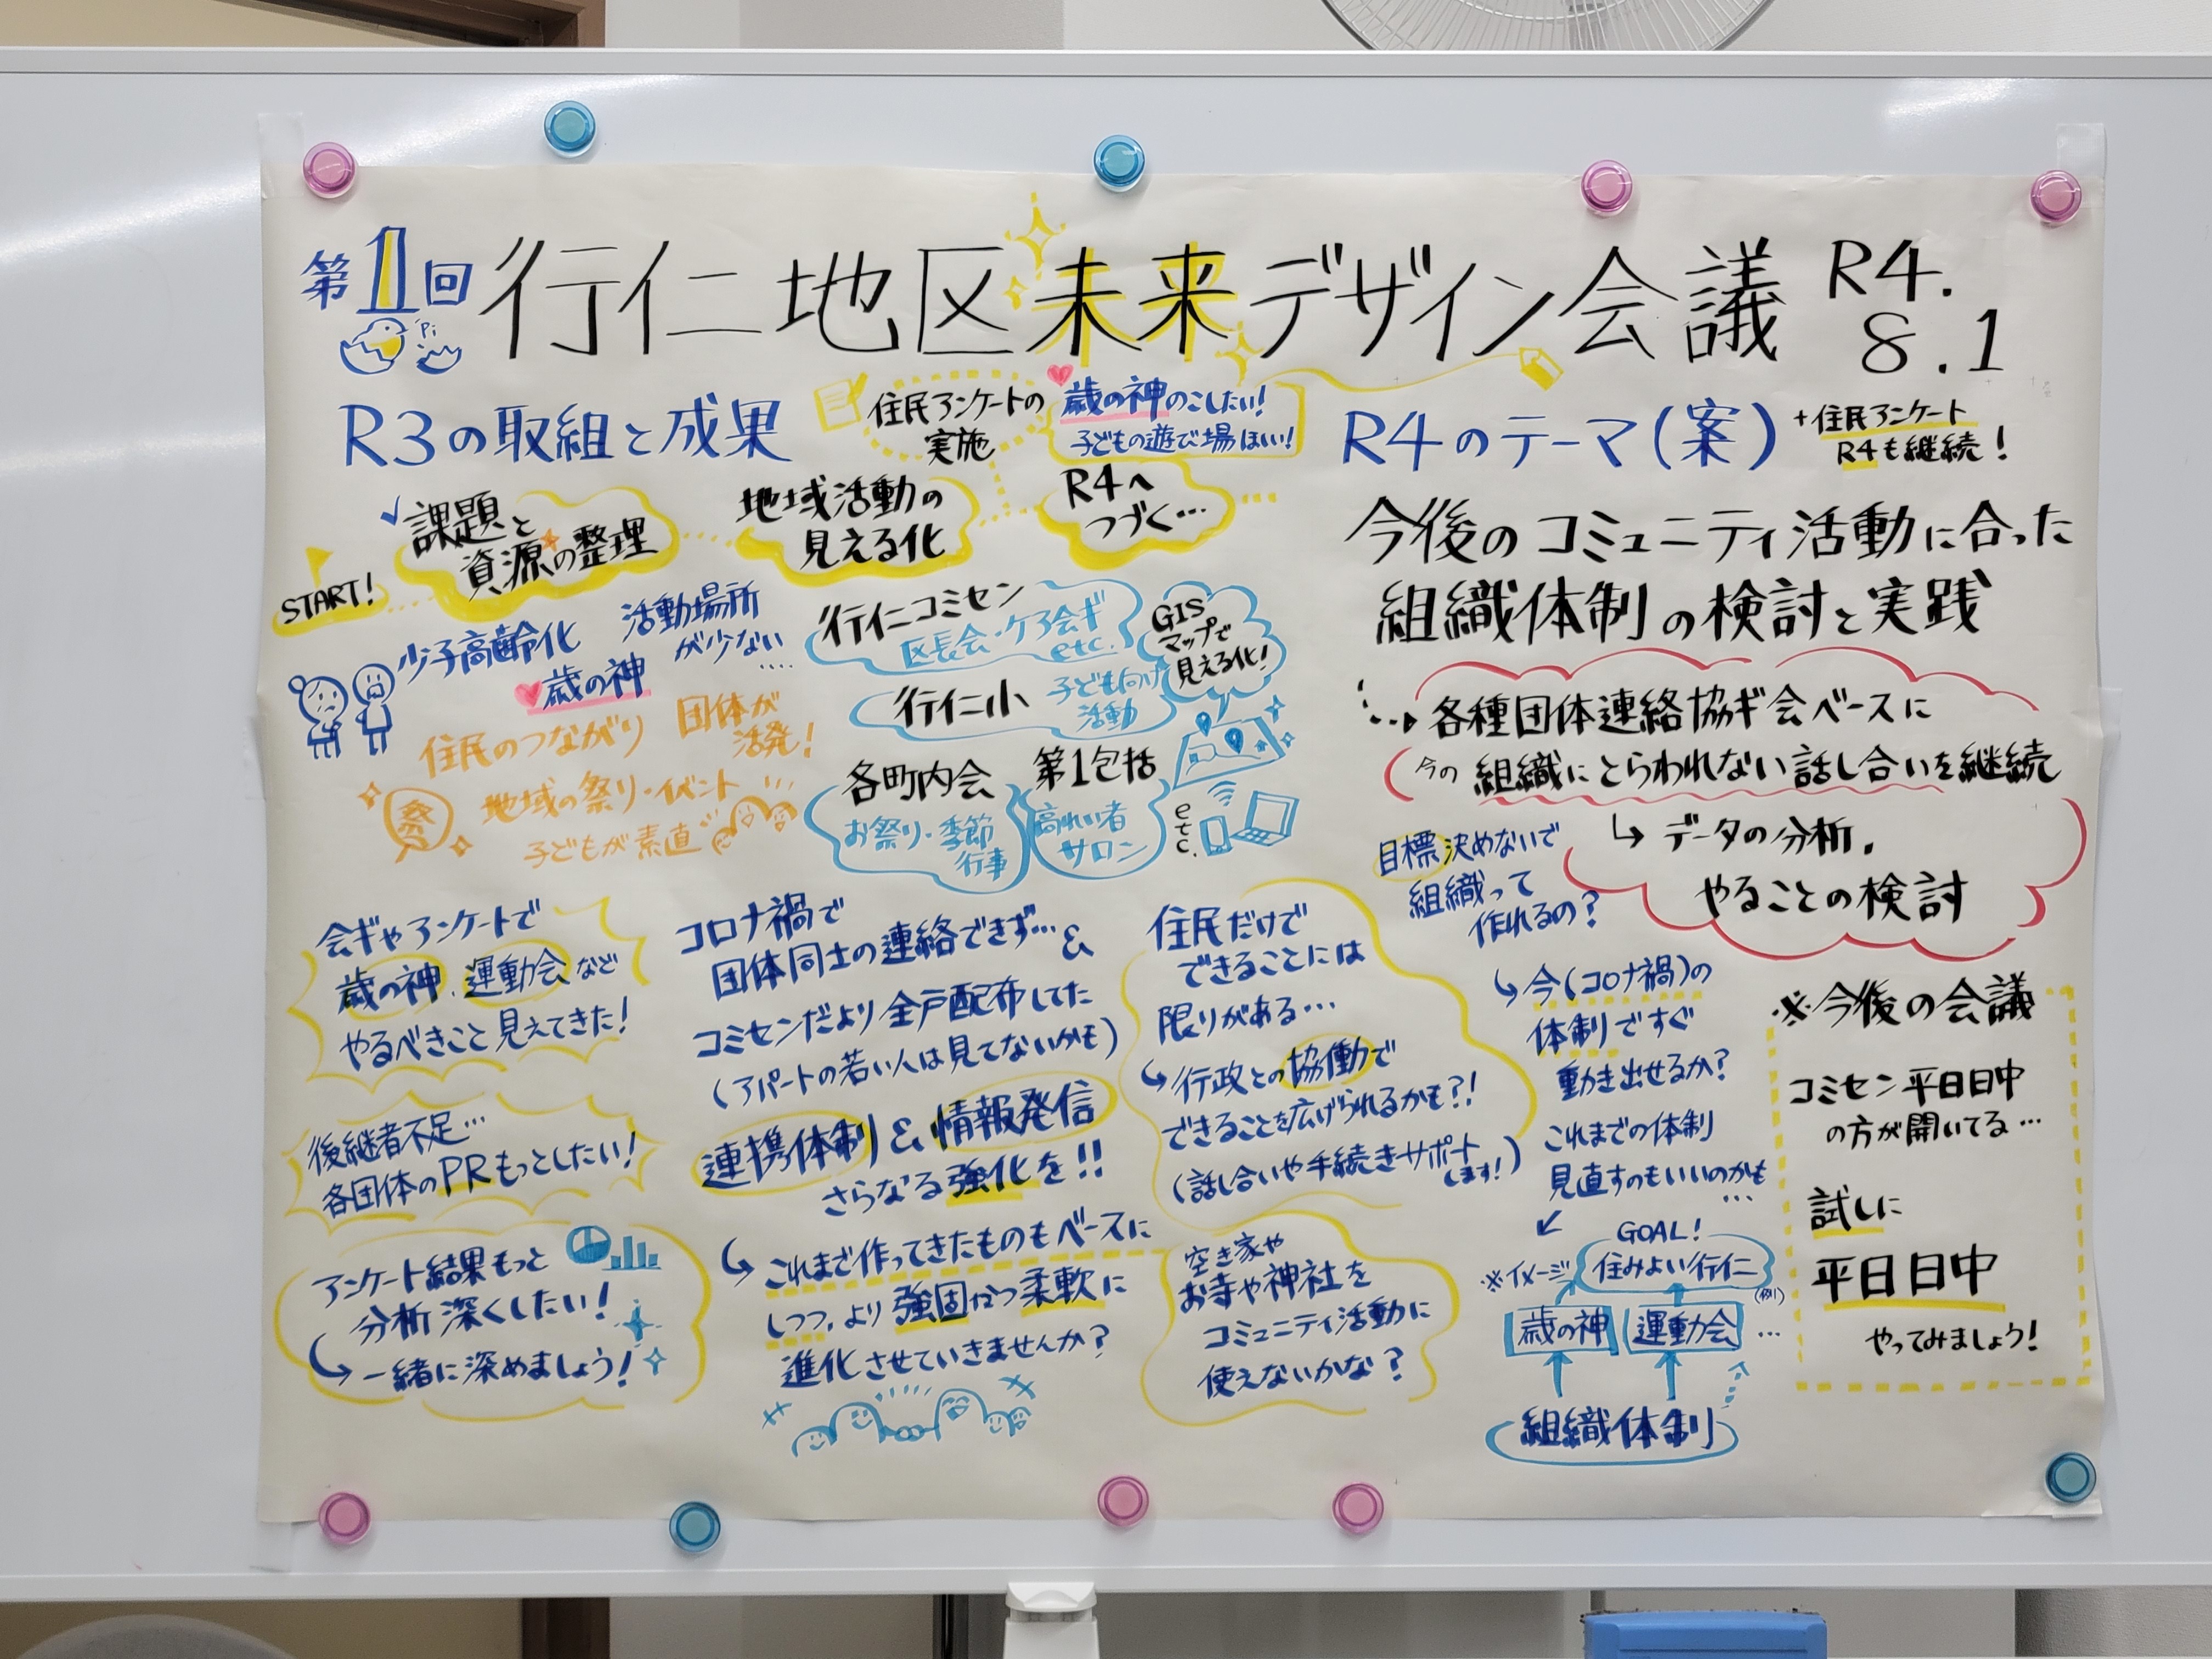 第1回 行仁地区未来デザイン会議 R4.8.1
Pi
R3の取組と成果
住民アンケートの
実施
歳の神のこしたい!
子どもの遊び場ほしい!
START!
課題と
資源の整理
地域活動の
見える化
R4へ
つづく…
少子高齢化
活動場所
が少ない
....
歳の神
住民のつながり
団体が
活発!
祭
地域の祭り・イベント
子どもが素直
行仁コミセン
区長会・ケア会ギ
etc.
行仁小
子ども向け
活動
GIS
マップで
見える化!
各町内会
お祭り・季節
行事
第1包括
高れい者
サロン
etc.
会ギやアンケートで
歳の神、運動会など
やるべきこと見えてきた!
後継者不足…
各団体のPRもっとしたい!
アンケート結果もっと
分析深くしたい!
一緒に深めましょう!
コロナ禍で
団体同士の連絡できず…&
コミセンだより全戸配布してた
(アパートの若い人は見てないかも)
連携体制&情報発信
さらなる強化を!!
これまで作ってきたものもベースに
しつつ、より強固かつ柔軟に
進化させていきませんか?
住民だけで
できることには
限りがある…
行政との協働で
できることを広げられるかも?!
(話し合いや手続きサポート
します!)
空き家や
お寺や神社を
コミュニティ活動に
使えないかな?
R4のテーマ(案)
+住民アンケート
R4も継続!
今後のコミュニティ活動に合った
組織体制の検討と実践
各種団体連絡協ギ会ベースに
今の組織にとらわれない話し合いを継続
データの分析、
やることの検討
目標決めないで
組織って
作れるの?
今(コロナ禍)の
体制ですぐ
動き出せるか?
これまでの体制
見直すのもいいのかも
…
※イメージ
GOAL!
住みよい行仁
(例)
歳の神
運動会
…
組織体制
※今後の会議
コミセン平日日中
の方が開いてる…
試しに
平日日中
やってみましょう!